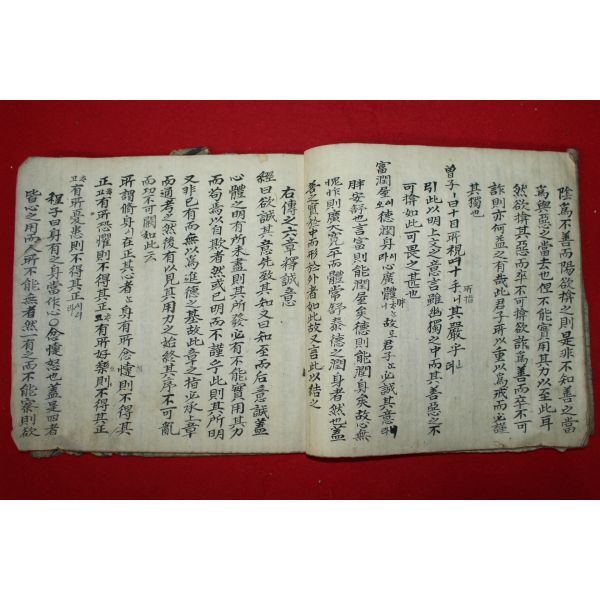 陰爲不善而陽欲揜之則是非不知善之當
爲與惡之當去也但不能實用其力以至此耳
然欲揜其惡而卒不可揜欲詐爲善而卒不可
詐則亦何益之有哉此君子所以重以爲戒而必謹
其獨也
曾子ㅣ曰十目所視며十手所指니其嚴乎
引此以明上文之意言雖幽獨之中而其善惡之不
可揜如此可畏之甚也
富潤屋오德潤身心廣體胖故로君子必誠其意
胖安舒也言富則能潤屋矣德則能潤身矣故心無
愧怍則廣大寬平而體常舒泰德之潤身者然也蓋
善之實於中而形於外者如此故又言此以結之
右傳之六章釋誠意
經曰欲誠其意先致其知又曰知至而后意誠蓋
心體之明有所未盡則其所發必有不能實用其力
而苟焉以自欺者然或已明而不謹乎此則其所明
又非己有而無以爲進德之基故此章之指必承上章
而通考之然後有以見其用力之始終其序不可亂
而功不可闕如此云
所謂脩身이在正其心者는身有所忿懥則不得其
正고有所恐懼則不得其正고有所好樂則不得其正
고有所憂患則不得其正
程子曰身有之身當作心○忿懥怒也蓋是四者
皆心之用而人所不能無者然一有之而不能察則欲